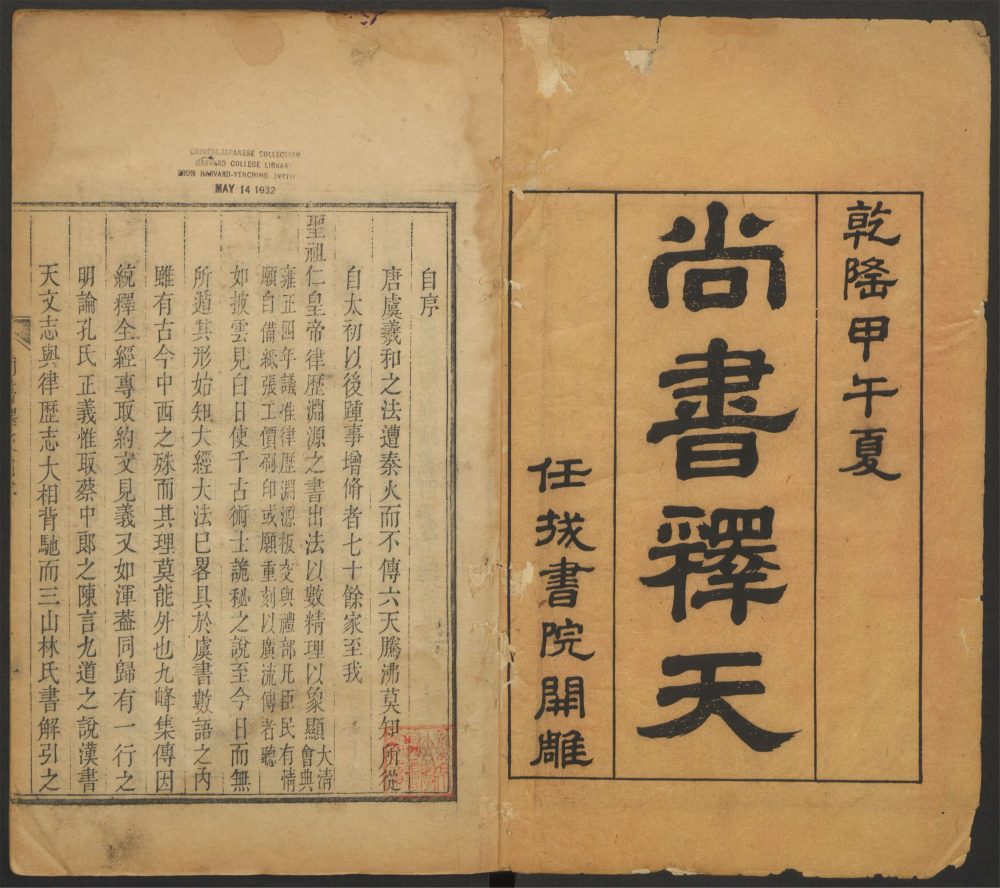 乾隆甲午夏
尚書釋天
任城書院開雕
自序
唐虞羲和之法遭秦火而不傳六天騰沸莫知所從
自太初以後踵事增脩者七十餘家至我
聖祖仁皇帝律歷淵源之書出法以數精理以象顯
大清
會典
雍正四年議准律歷淵源板交與禮部凡臣民有情
願自備紙張工價刷印或願重刻以廣流傳者聽
如披雲見白日使千古術士詭秘之說至今日而無
所遁其形始知大經大法已畧具於虞書數語之內
雖有古今中西之殊而其理莫能外也九峰集傳因
統釋全經專取約文見義又如渾葢同歸有一行之
明論孔氏正義惟取蔡中郎之陳言九道之說漢書
天文志與律歷志大相背馳而三山林氏書解引之
CHINESE-JAPANESE COLLECTION
HARVARD COLLEGE LIBRARY
HARVARD-YENCHING INSTI
MAY 14 1932